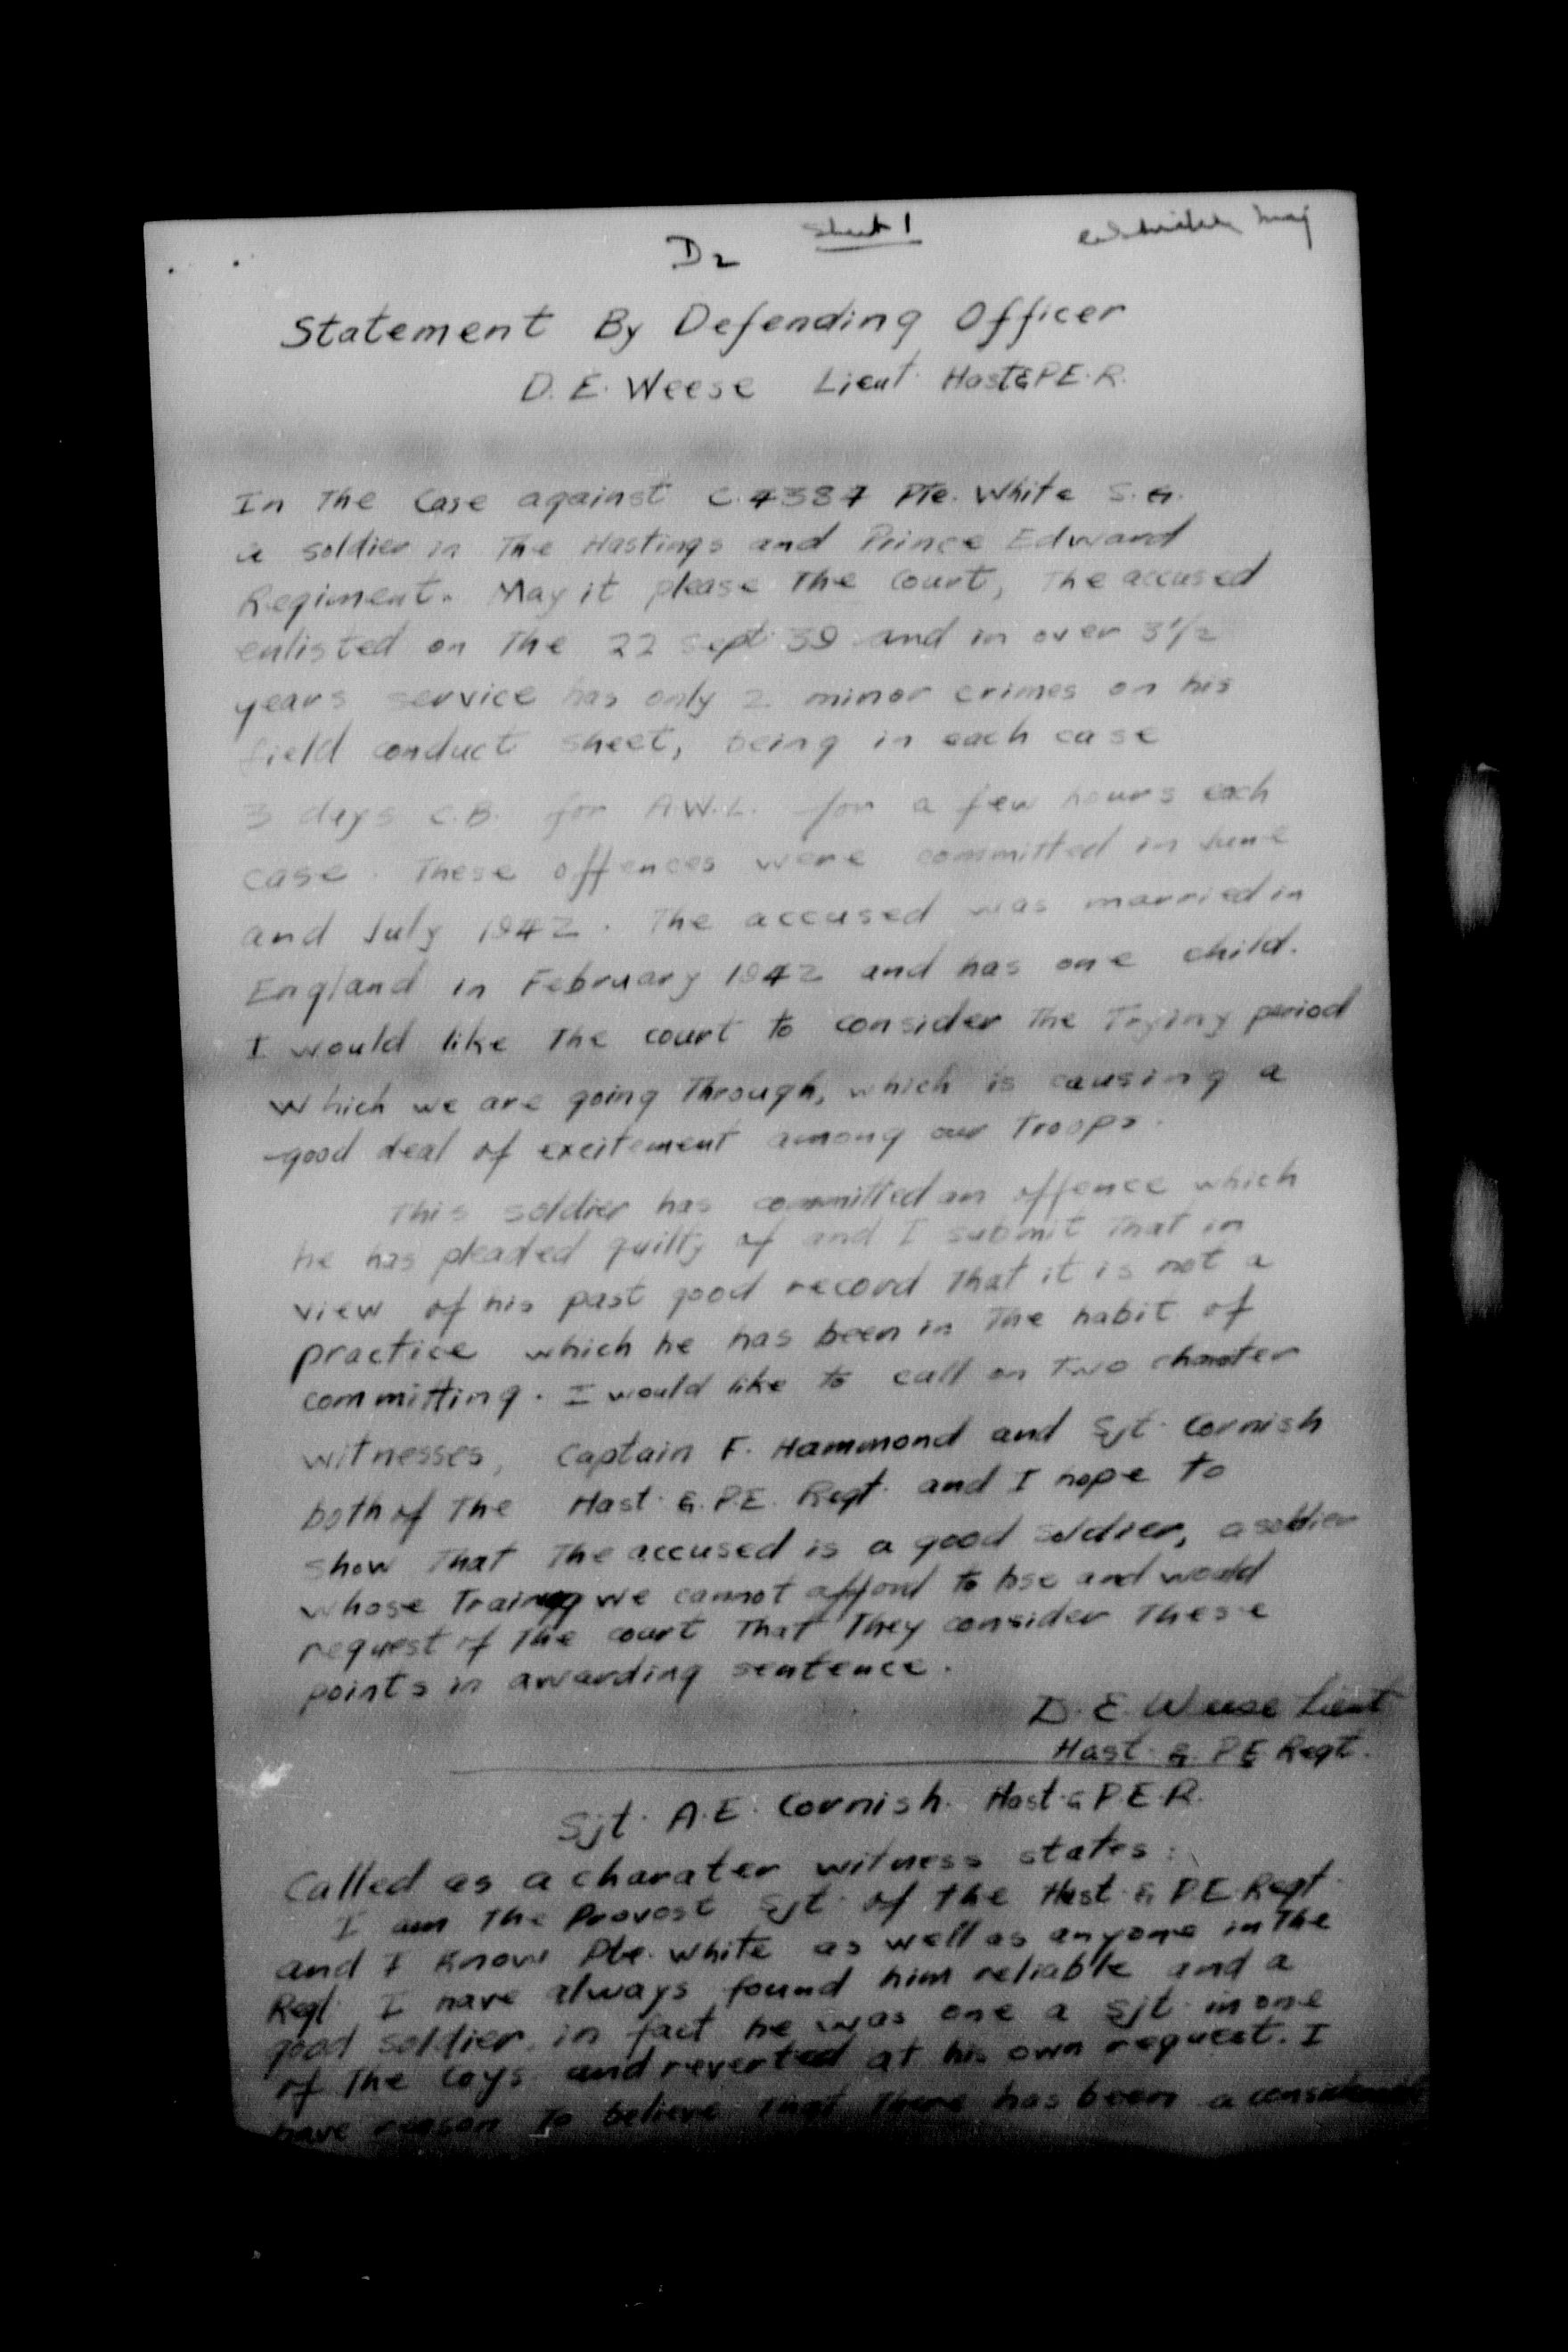 D2 Sheet 1 Maj
Statement By Defending Officer
D. E. Weese Lieut. Hast & P.E.R.
In The Case against C.4387 Pte. White S.G.
a soldier in The Hastings and Prince Edward
Regiment. May it please The Court, The accused
enlisted on The 22 Sept. 39 and in over 3½
years service has only 2 minor crimes on his
field conduct sheet, being in each case
3 days C.B. for A.W.L. for a few hours each
case. These offences were committed in June
and July 1942. The accused was married in
England in February 1942 and has one child.
I would like The court to consider The Trying period
which we are going Through, which is causing a
good deal of excitement among our Troops.
This soldier has committed an offence which
he has pleaded guilty of and I submit That in
view of his past good record That it is not a
practice which he has been in The habit of
committing. I would like to call on Two charater
witnesses, Captain F. Hammond and Sjt. Cornish
both of The Hast. & P.E. Regt. and I hope to
show That The accused is a good soldier, a soldier
whose Training we cannot afford to lose and would
request of The court That They consider These
points in awarding sentence.
D. E. Weese Lieut
Hast. & P E Regt.
Sjt. A.E. Cornish. Hast. & P.E.R.
Called as a charater witness states:
I am The Provost Sjt. of The Hast. & P.E. Regt.
and I know Pte. White as well as anyone in The
Regt. I have always found him reliable and a
good soldier, in fact he was one a Sjt. in one
of The Coys. and reverted at his own request. I
have reason To believe That There has been a